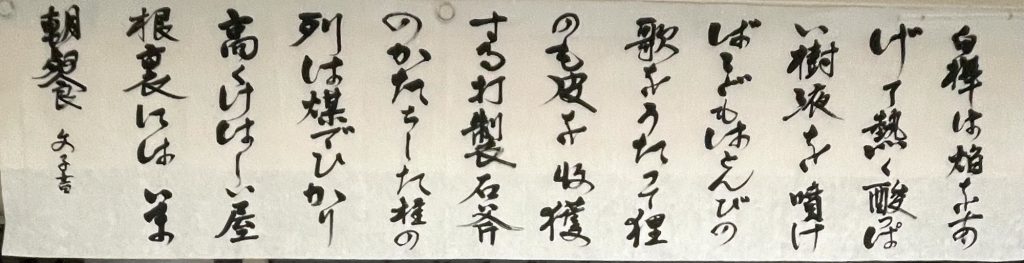 白樺は焔をあ
げて熱く酸っぱ
い樹液を噴け
ばこどもはとんびの
歌をうたって狸
の毛皮を収穫
する打製石斧
のかたちした柱の
列は煤でひかり
高くけはしい屋
根裏には いま
朝餐 文子書